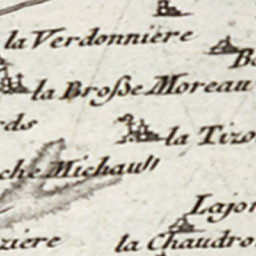 la Verdonnière
Bo
la Broſse Moreau
rds
la Tizo
che Michau
Lajon
zière
la Chaudro